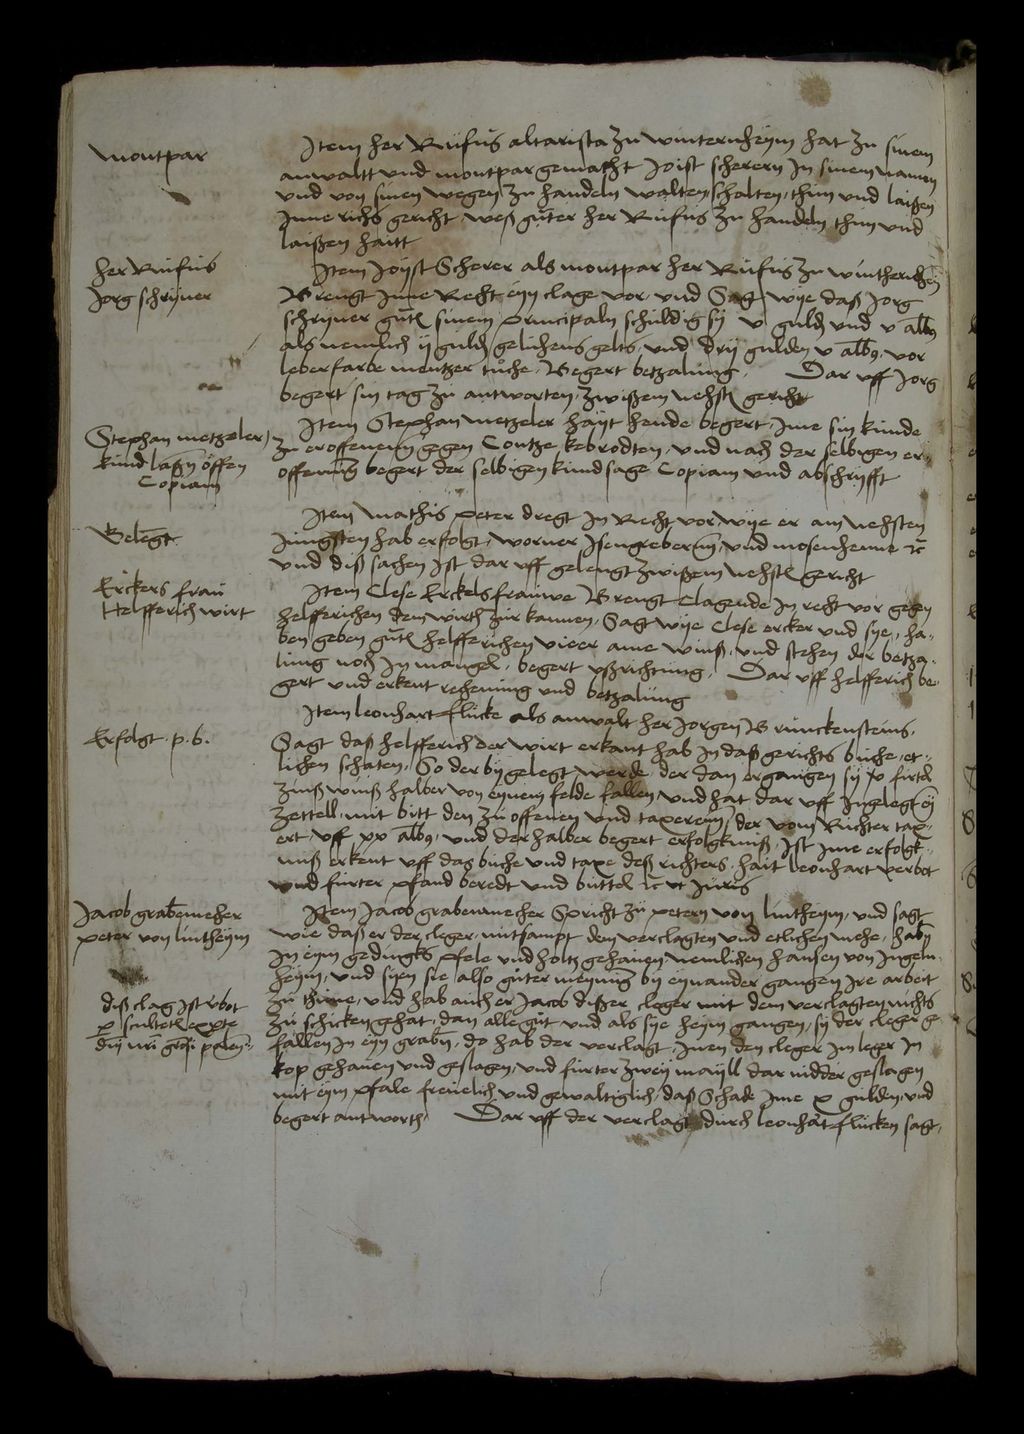 montpar
Item her Rufus altarista zu winternheym hat zu sinem
anwaltt und montpar gemacht Joist scherern In sinem namen
und von sinen wegen zu handeln walten, schalten, thun und laißen
Inne richs gericht weß guter her Rufus zu handeln thun und
laißen haitt
her Rufus
Jorg schryner
Item Joyst Scherer als montpar her Rufus zu
Brengt Inne Recht eyn clage vor und Sagt wye daß Jorg
schryner sinem principaln schuldig sy v guld und v alb
als nemlich ij guld gelichens gelts, und dry gulden v alb, vor
leberfarbe mentzer tuche, Begert betzalung. Dar uff Jorg
begert sin tag zu antworten, zwißem nehst gericht
Stephan metzeler
kund öffen
Copiam
Item Stephan metzeler hayt heude begert, Ime sin kunde
zu eroffenen gegen Contze kebrodten, und nach der selbigen er
offenung begert der selbigen kundsage Copiam und abschryfft
Gelengt
Item Mathis peter dregt In Recht vor wye er am nehsten
Jungsten hab erfolgt, worner und mosenhenne
und diß sachen Ist dar uff gelengt zwißem nehst gericht
Erckers frau
Helfferich wirt
Item Clese Erckels frauwe Brengt clagende In recht vor gegen
helfferichen dem wirth zur kannen, Sagt wye Clese ercker und sye, ha-
ben geben gut helfferichen vieer ame wins, und stehen der betza-
lung noch In mangel, begert ußrichtung. Dar uff helfferich be-
gert und erkent rechenung und betzalung
Erfolgt p. b.
Item leonhart flucke als anwalt her Jorgen Brunckensteins,
Sagt daß helfferich der wirt erkant hab In daß gerichts buche, et-
lichen schaten, So der by gelegt werde, der dan ergangen sy firtel
zinß winß halber von eynem felde fallen, und hat dar uff Ingelegt ey
zettell, mit bitt den zu offenen und taxeren, der vom Richter tax-
ert, uff xx alb, und der halber begert erfolgkniß, Ist Ime erfolgk-
niß erkent uff das buche und taxe deß richters, hait leonhart verbot
und furter pfand beredt und buttel ut Juris
Jacob grabenmeher
peter von lintheym
Item Jacob grabenmecher Spricht zu petern von lintheym, und sagt
wie daß er der cleger, mitsampt dem verclagten und etlichen mehe, haben
In eym gedingts pfele und holtz gehauen, nemlichen hansen von Ingeln-
heym, und syen sie also guter meynung by eynander gangen Ire arbeit
diß clag Ist
zu thune, und hab auch er Jacob dißer cleger mit dem verclagten nichts
zu schicken gehat, dan alle gut und als sye heym gangen, sy der cleger ge-
fallen In eyn graben, do hab der verclagt, Inen den cleger Im leger In
kop gehauen und geslagen, und furter zwey mayll dar nidder geslagen
mit eym pfale freuelich und gewaltiglich, daß Schade Ime x gulden, und
begert antworth, Dar uff der verclagt durch leonhart flucken sagt,